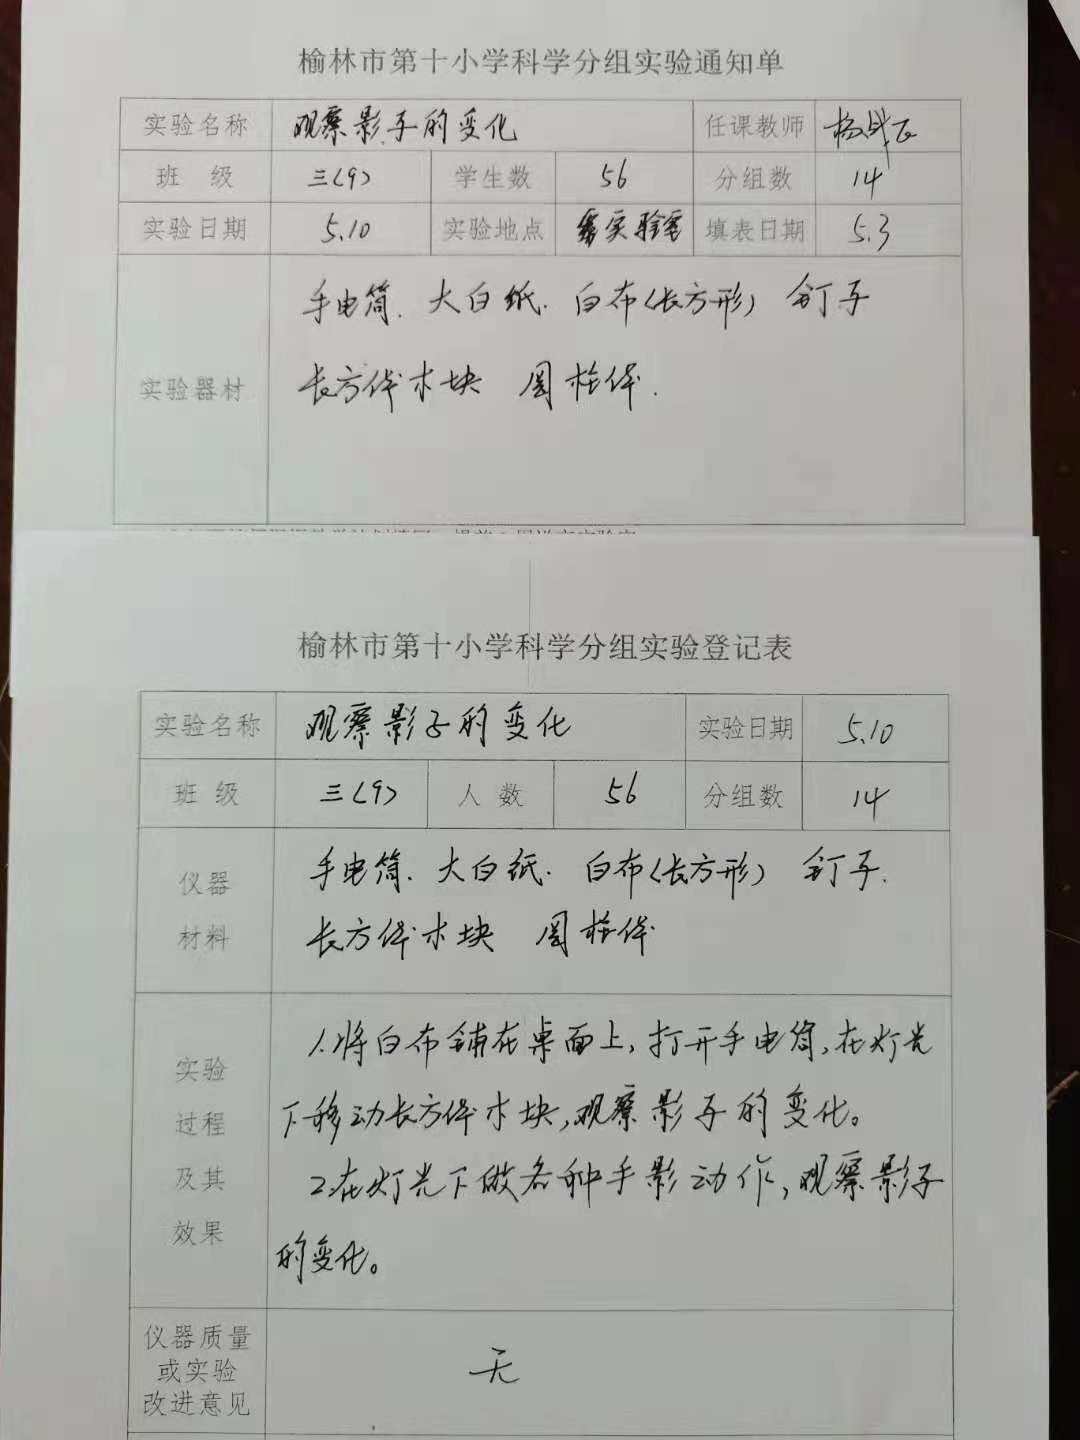 榆林市第十小学科学分组实验通知单
实验名称 观察影子的变化 任课教师
班 级 三(9) 学生数 56 分组数 14
实验日期 5.10 实验地点 实验室 填表日期 5.3
手电筒. 大白纸. 白布(长方形) 钉子
实验器材 长方体木块 圆柱体.
榆林市第十小学科学分组实验登记表
实验名称 观察影子的变化 实验日期 5.10
班 级 三(9) 人 数 56 分组数 14
仪器 手电筒. 大白纸. 白布(长方形) 钉子.
材料 长方体木块 圆柱体
实验 1.将白布铺在桌面上,打开手电筒,在灯光
过程 下移动长方体木块,观察影子的变化。
及其 2.在灯光下做各种手影动作,观察影子
效果 的变化。
仪器质量
或实验 无
改进意见